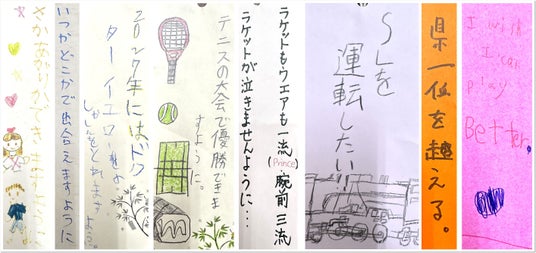 さかあがりができますように
いつかどこかで出合えますように
2027年にはドク
ターイエローの
テニスの大会で優勝できま
すように。
ラケットもウエアも一流(Prince)腕前三流
ラケットが泣きませんように…
SLを
運転したい!!
県一位を越える。
I wish
I can
play
Better.